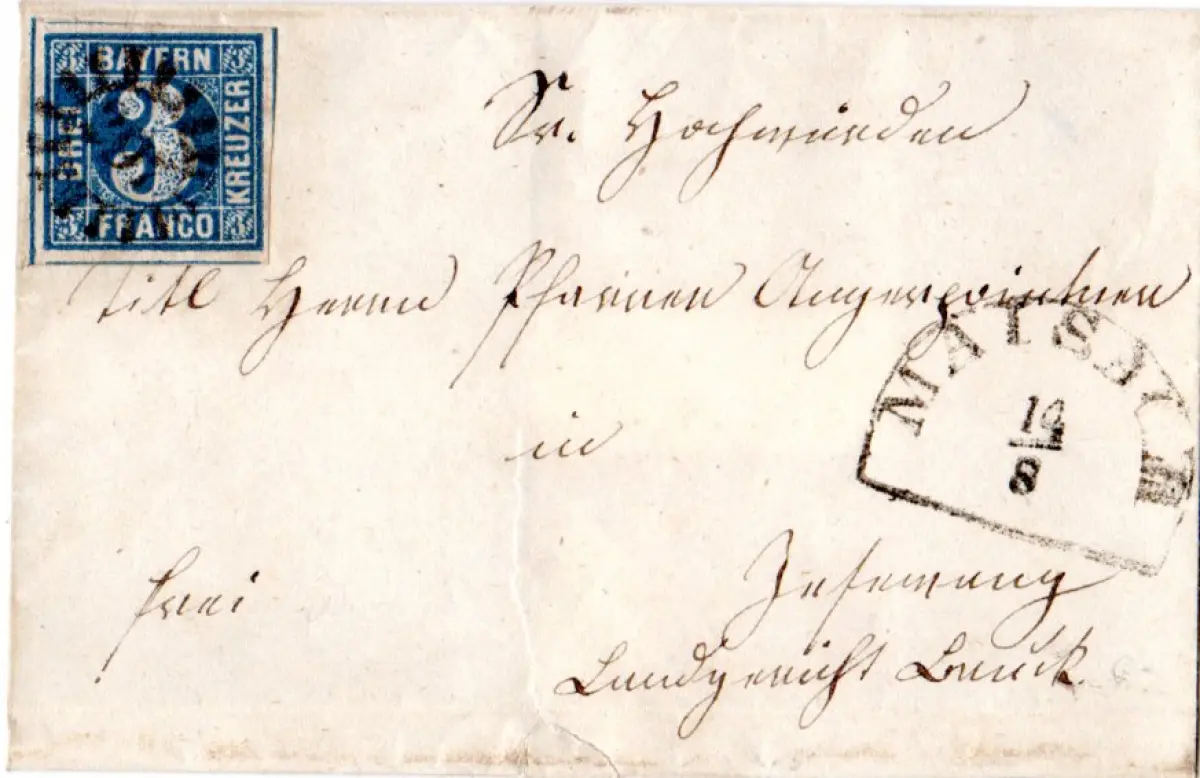 BAYERN
DREI
3
KREUZER
FRANCO
Sr. Hochwürden
Titl Herrn Pfarrer Angerpointner
MAISACH
10
8
in
frei
Jesenwang
Landgericht Bruck.